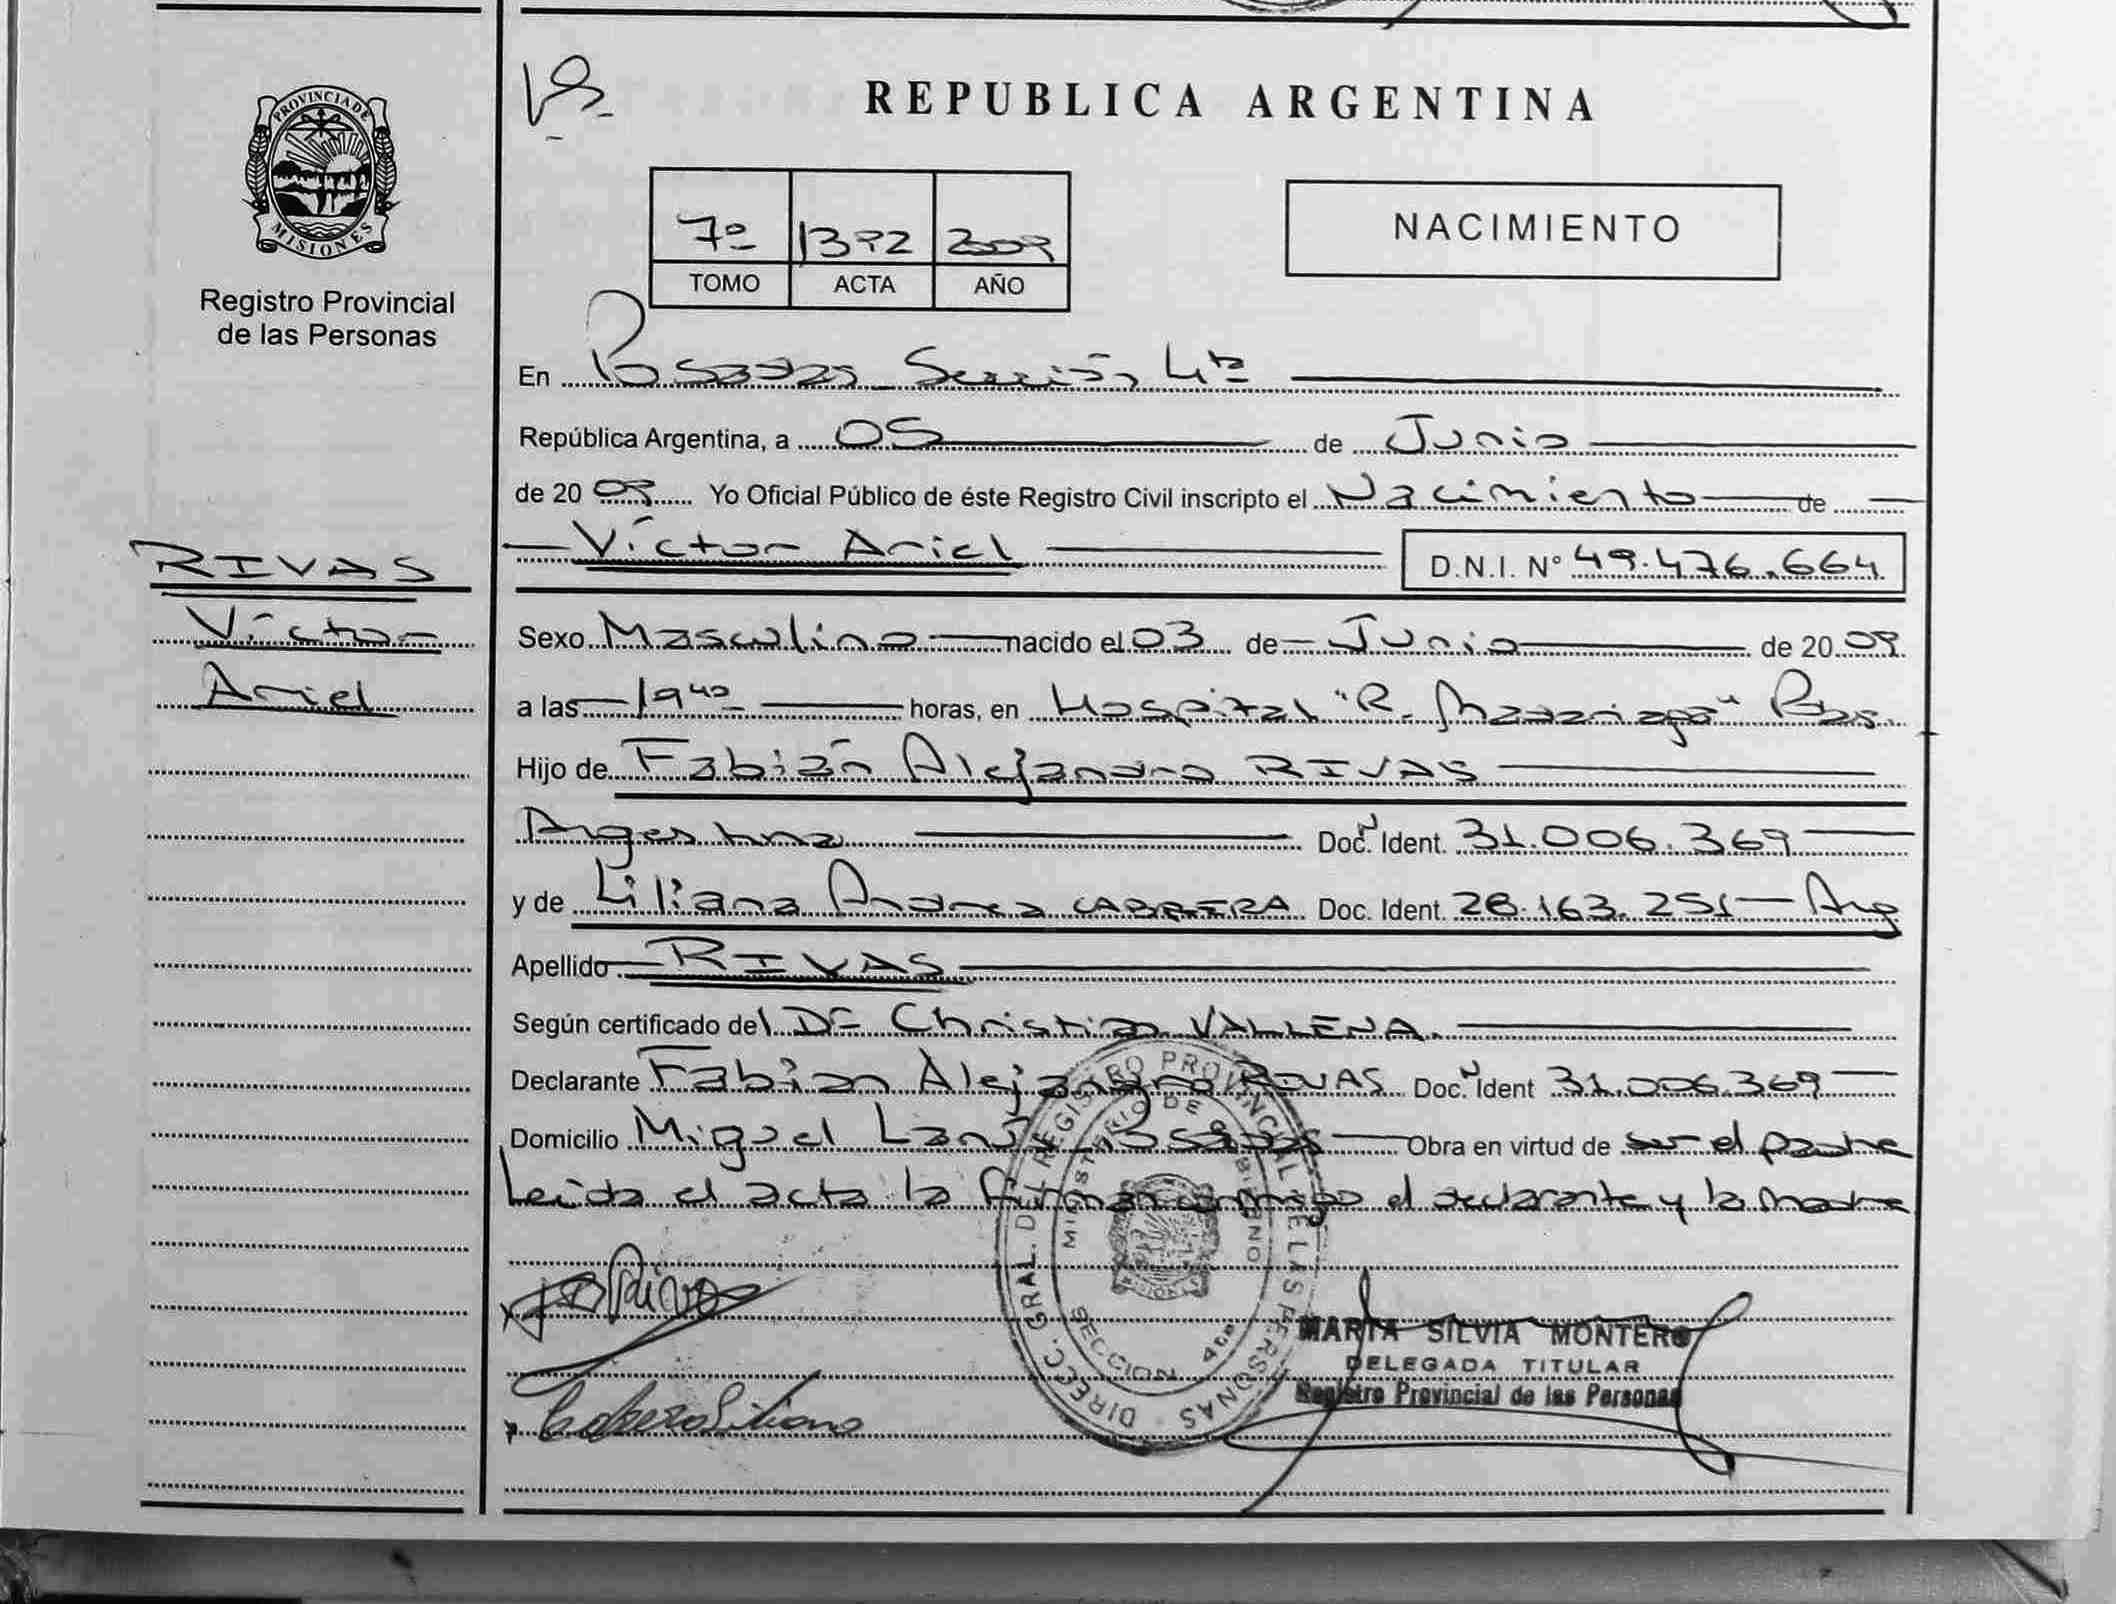 PROVINCIA DE
MISIONES
Registro Provincial
de las Personas
RIVAS
Víctor
Ariel
REPUBLICA ARGENTINA
7º 1392 2009
TOMO ACTA AÑO
NACIMIENTO
En Posadas Sección 4ta
República Argentina, a 05 de Junio
de 2009 Yo Oficial Público de éste Registro Civil inscripto el Nacimiento de
Víctor Ariel D.N.I. Nº 49.476.664
Sexo Masculino nacido el 03 de Junio de 2009
a las 19 40 horas, en Hospital "R. Madariaga" Pdas.
Hijo de Fabián Alejandro RIVAS
Argentina Doc. Ident. 31.006.369
y de Liliana Andrea CABRERA Doc. Ident. 28.163.251 Arg
Apellido RIVAS
Según certificado del Dr Christian
Declarante Fabian Alejandro RIVAS Doc. Ident 31.006.369
Domicilio Miguel Lanús Posadas Obra en virtud de ser el padre
Leida el acta la firman conmigo el declarante y la madre
DIRECC. GRAL. DEL REGISTRO PROVINCIAL DE LAS PERSONAS
MINISTERIO DE GOBIERNO
SECCION 4ta
Rivas
Cabrera Liliana
MARTA SILVIA MONTERO
DELEGADA TITULAR
Registro Provincial de las Personas